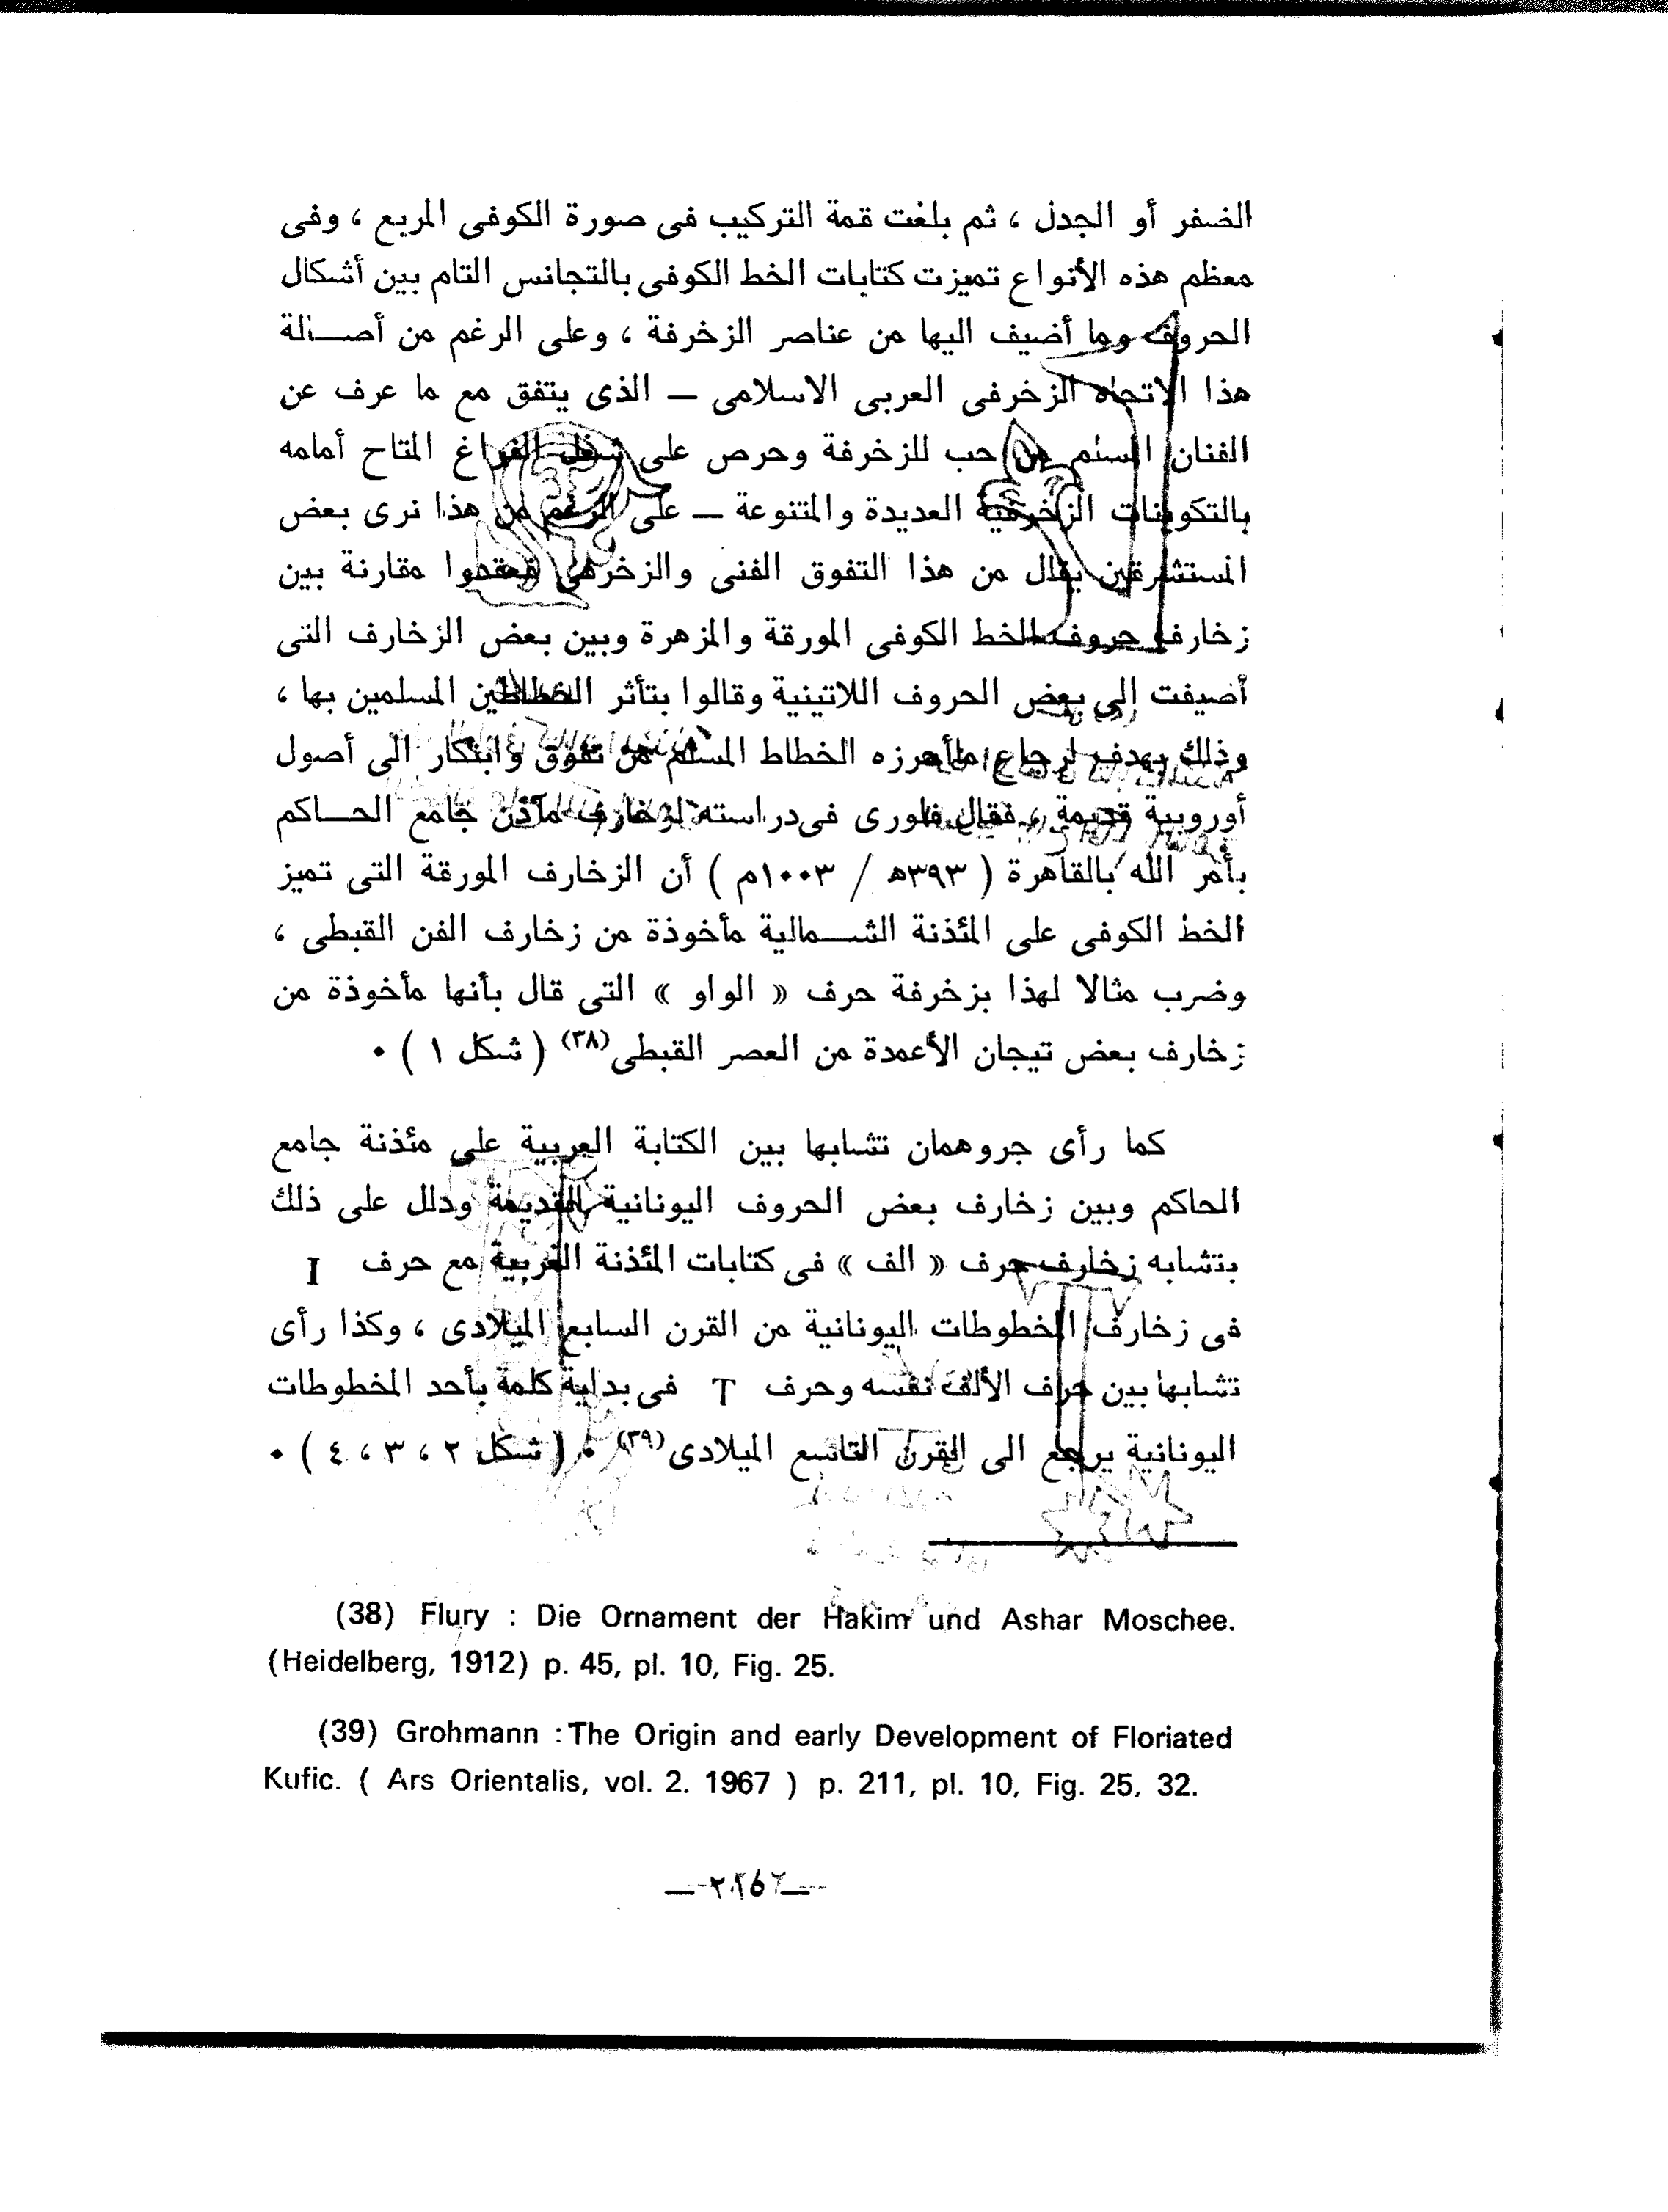 الضفر أو الجدل ، ثم بلغت قمة التركيب فى صورة الكوفى المربع ، وفى
معظم هذه الأنواع تميزت كتابات الخط الكوفى بالتجانس التام بين أشكال
الحروف وما أضيف اليها من عناصر الزخرفة ، وعلى الرغم من أصالة
هذا الاتجاه الزخرفى العربى الاسلامى — الذى يتفق مع ما عرف عن
الفنان المسلم من حب للزخرفة وحرص على شغل الفراغ المتاح أمامه
بالتكوينات الزخرفية العديدة والمتنوعة — على الرغم من هذا نرى بعض
المستشرقين يقلل من هذا التفوق الفنى والزخرفى فعقدوا مقارنة بين
زخارف حروف الخط الكوفى المورقة والمزهرة وبين بعض الزخارف التى
أضيفت إلى بعض الحروف اللاتينية وقالوا بتأثر الخطاطين المسلمين بها ،
وذلك بهدف ارجاع ما أحرزه الخطاط المسلم من تفوق وابتكار الى أصول
أوروبية قديمة ، فقال فلورى فى دراسته لزخارف مآذن جامع الحاكم
بأمر الله بالقاهرة ( ٣٩٣هـ / ١٠٠٣م ) أن الزخارف المورقة التى تميز
الخط الكوفى على المئذنة الشمالية مأخوذة من زخارف الفن القبطى ،
وضرب مثالا لهذا بزخرفة حرف « الواو » التى قال بأنها مأخوذة من
زخارف بعض تيجان الأعمدة من العصر القبطى(٣٨) ( شكل ١ ) ٠
كما رأى جروهمان تشابها بين الكتابة العربية على مئذنة جامع
الحاكم وبين زخارف بعض الحروف اليونانية القديمة ودلل على ذلك
بتشابه زخارف حرف « الف » فى كتابات المئذنة الغربية مع حرف I
فى زخارف المخطوطات اليونانية من القرن السابع الميلادى ، وكذا رأى
تشابها بين حرف الألف نفسه وحرف T فى بداية كلمة بأحد المخطوطات
اليونانية يرجع الى القرن التاسع الميلادى(٣٩) ٠ ( شكل ٢ ، ٣ ، ٤ ) ٠
(38) Flury : Die Ornament der Hakim und Ashar Moschee.
(Heidelberg, 1912) p. 45, pl. 10, Fig. 25.
(39) Grohmann : The Origin and early Development of Floriated
Kufic. ( Ars Orientalis, vol. 2. 1967 ) p. 211, pl. 10, Fig. 25, 32.